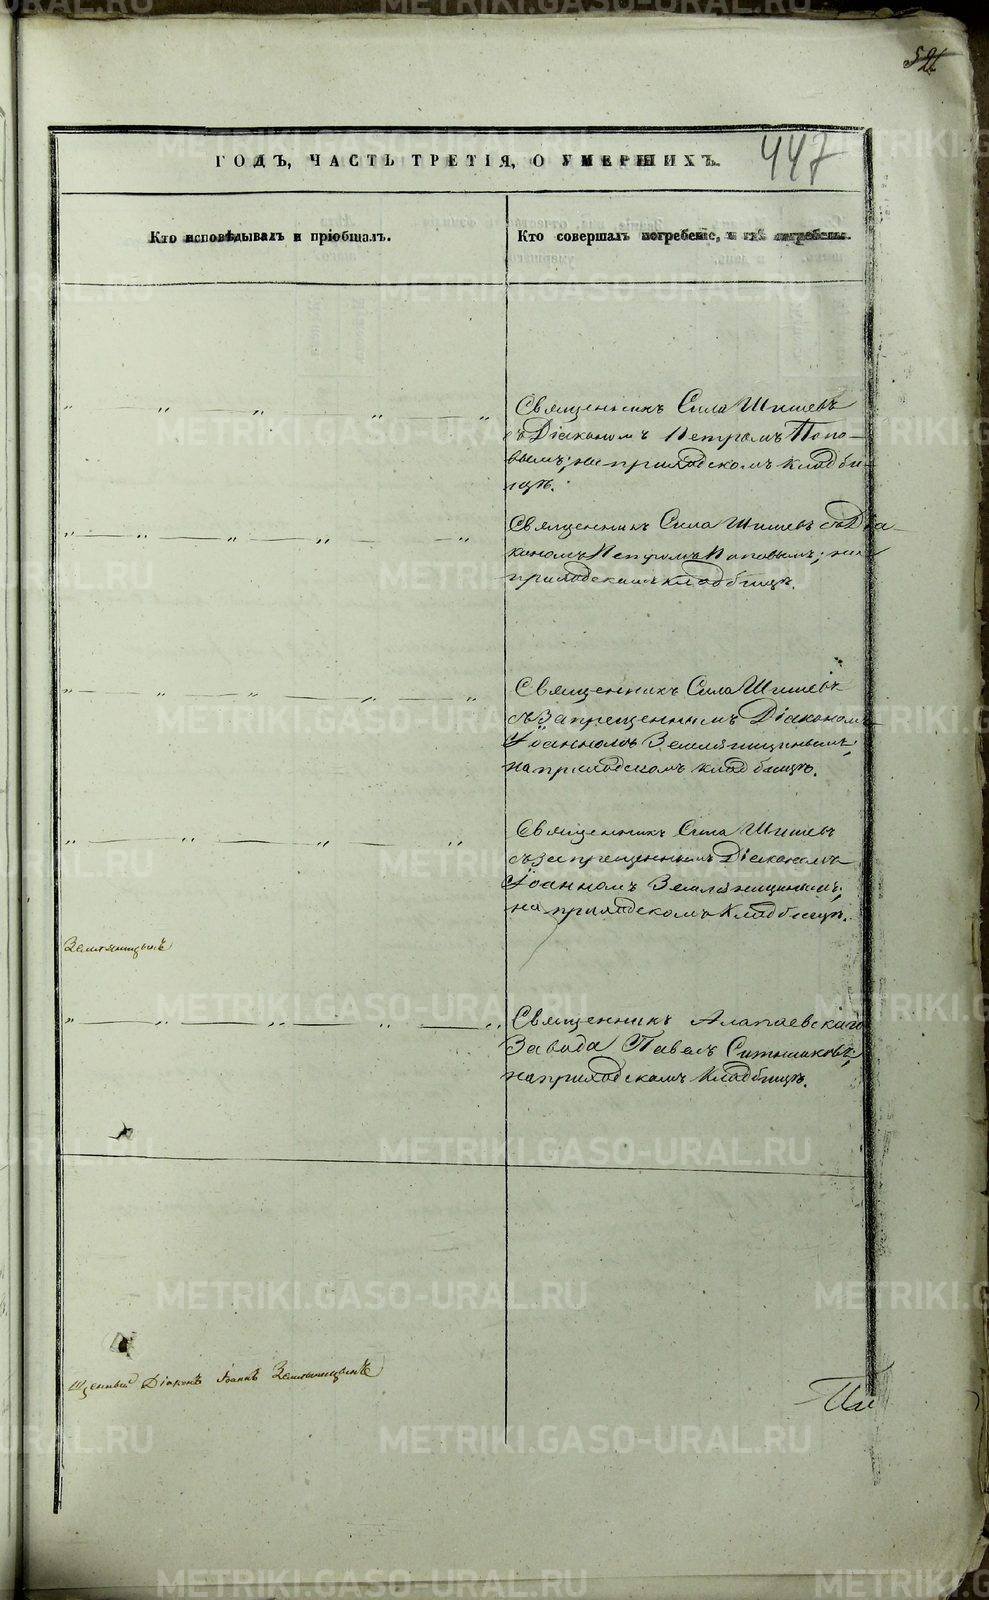 447
ГОДЪ, ЧАСТЬ ТРЕТІЯ, О УМЕРШИХЪ.
Кто исповѣдывалъ и пріобщалъ.
Кто совершалъ погребеніе, и гдѣ погребены.
Священникъ Сила Шишевъ
съ Діакономъ Петромъ Попо-
вымъ; на приходскомъ кладби-
щѣ.
Священникъ Сила Шишевъ съ Діа-
кономъ Петромъ Поповымъ; на
приходскомъ кладбищѣ.
Священникъ Сила Шишевъ
съ запрещеннымъ Діакономъ
Іоанномъ Земляницынымъ;
на приходскомъ кладбищѣ.
Священникъ Сила Шишевъ
съ запрещеннымъ Діакономъ
Іоанномъ Земляницынымъ;
на приходскомъ кладбищѣ.
Земляницынъ
Священникъ Алапаевскаго
Завода Павелъ
на приходскомъ кладбищѣ.
щенный Діаконъ Іоаннъ Земляницынъ
METRIKI.GASO-URAL.RU